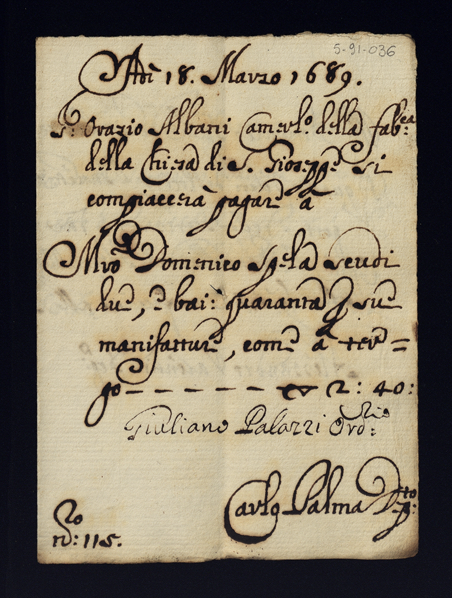 5-91-036
Adi 18. Marzo 1689.
Sr. Orazio Albani Camerlo. della fabca:
della Chiesa di S. Giorge si
compiacerà pagare à
Mro Domenico Spela scudi
due, e bai: quaranta p sue
manifatture, come à ter=
go - - - - - - - 2: 40:
Giuliano Palazzi Ordrio:
Carlo Palma Dto
no: 115.